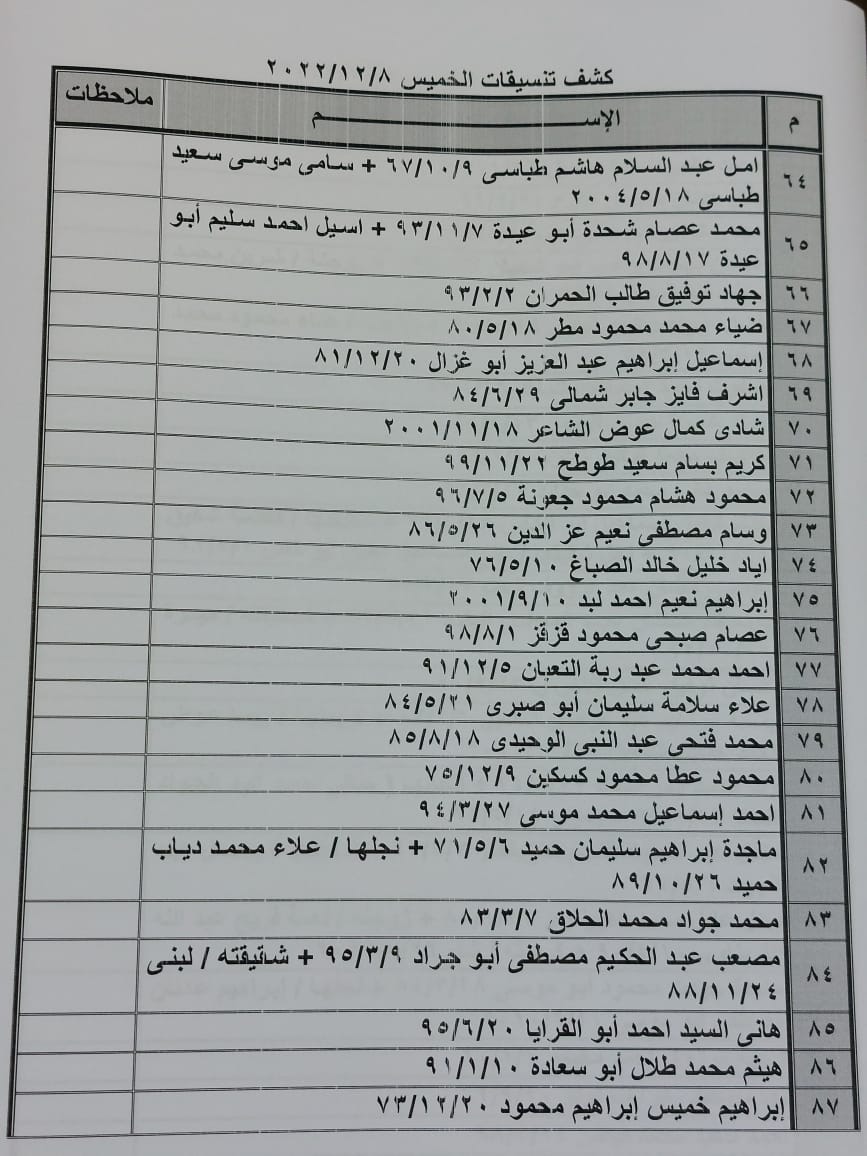 كشف تنسيقات الخميس ٢٠٢٢/١٢/٨
م الإســـــــــم ملاحظات
٦٤ امل عبد السلام هاشم طباسى ٦٧/١٠/٩ + سامى موسى سعيد
طباسى ٢٠٠٤/٥/١٨
٦٥ محمد عصام شحدة أبو عيدة ٩٣/١١/٧ + اسيل احمد سليم أبو
عيدة ٩٨/٨/١٧
٦٦ جهاد توفيق طالب الحمران ٩٣/٢/٢
٦٧ ضياء محمد محمود مطر ٨٠/٥/١٨
٦٨ إسماعيل إبراهيم عبد العزيز أبو غزال ٨١/١٢/٢٠
٦٩ اشرف فايز جابر شمالى ٨٤/٦/٢٩
٧٠ شادى كمال عوض الشاعر ٢٠٠١/١١/١٨
٧١ كريم بسام سعيد طوطح ٩٩/١١/٢٢
٧٢ محمود هشام محمود جعونة ٩٦/٧/٥
٧٣ وسام مصطفى نعيم عز الدين ٨٦/٥/٢٦
٧٤ اياد خليل خالد الصباغ ٧٦/٥/١٠
٧٥ إبراهيم نعيم احمد لبد ٢٠٠١/٩/١٠
٧٦ عصام صبحى محمود قزقز ٩٨/٨/١
٧٧ احمد محمد عبد ربة التعبان ٩١/١٢/٥
٧٨ علاء سلامة سليمان أبو صبرى ٨٤/٥/٢١
٧٩ محمد فتحى عبد النبى الوحيدى ٨٥/٨/١٨
٨٠ محمود عطا محمود كسكين ٧٥/١٢/٩
٨١ احمد إسماعيل محمد موسى ٩٤/٣/٢٧
٨٢ ماجدة إبراهيم سليمان حميد ٧١/٥/٦ + نجلها / علاء محمد دياب
حميد ٨٩/١٠/٢٦
٨٣ محمد جواد محمد الحلاق ٨٣/٣/٧
٨٤ مصعب عبد الحكيم مصطفى أبو جراد ٩٥/٣/٩ + شقيقته / لبنى
٨٨/١١/٢٤
٨٥ هانى السيد احمد أبو القرايا ٩٥/٦/٢٠
٨٦ هيثم محمد طلال أبو سعادة ٩١/١/١٠
٨٧ إبراهيم خميس إبراهيم محمود ٧٣/١٢/٢٠